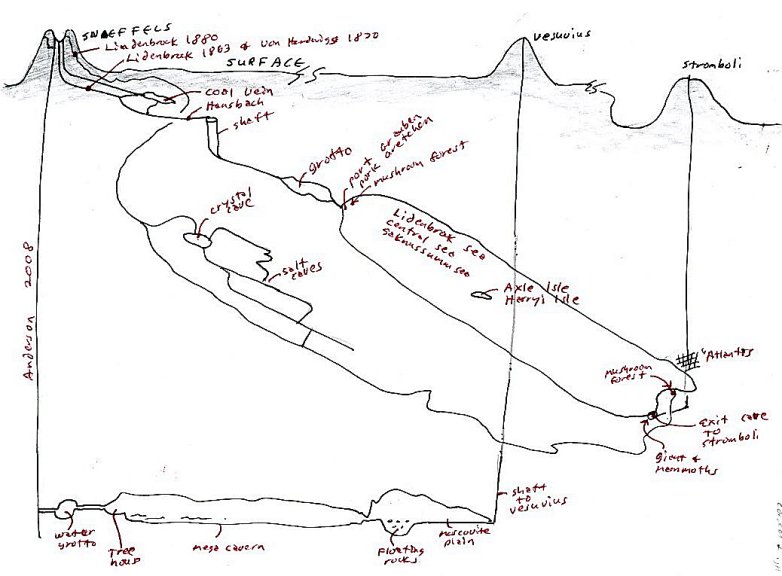 SNAEFFELS
Lindenbrock 1880
Lidenbrok 1863 & Von Hardwigg 1870
SURFACE
coal vein
Hansbach
shaft
vesuvius
stromboli
grotto
port Grauben
pork Gretchen
mushroom forest
crystal
cave
salt
caves
Lidenbrok sea
central sea
Saknussumm sea
Axle Isle
Harry's Isle
"Atlantis
mushroom
forest
exit cave
TO
stromboli
giant &
mammoths
Anderson 2008
shaft
TO
vesuvius
water
grotto
Tree
house
mega cavern
Floating
rocks
muscovite
plain